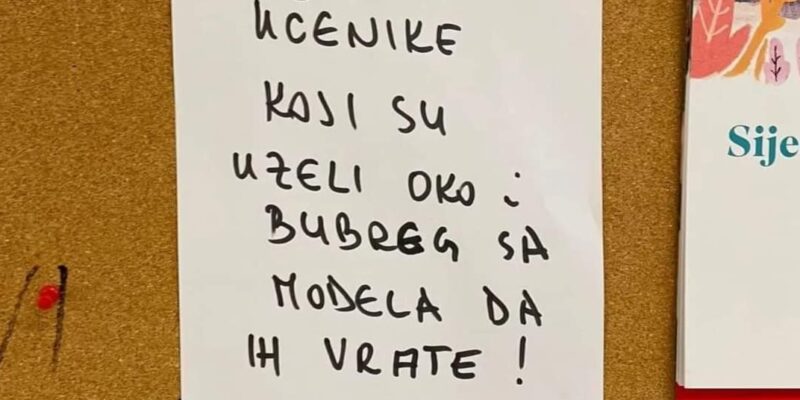 UCENIKE
KOJI SU
UZELI OKO i
BUBREG SA
MODELA DA
IH VRATE !
Sije